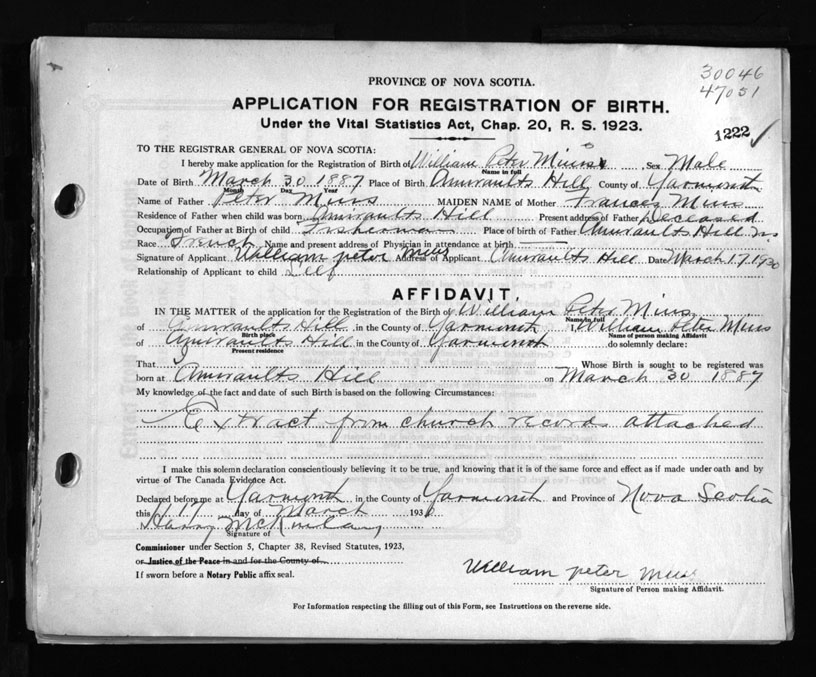 30046
47051
PROVINCE OF NOVA SCOTIA.
APPLICATION FOR REGISTRATION OF BIRTH.
Under the Vital Statistics Act, Chap. 20, R. S. 1923.
1222
TO THE REGISTRAR GENERAL OF NOVA SCOTIA:
I hereby make application for the Registration of Birth of William Peter Muis Sex Male
Name in full
Date of Birth March 30 1887 Place of Birth Amiraults Hill County of Yarmouth
Month Day Year
Name of Father Peter Muis MAIDEN NAME of Mother Frances Muis
Residence of Father when child was born Amiraults Hill Present address of Father Deceased
Occupation of Father at Birth of child Fisherman Place of birth of Father Amiraults Hill
Race French Name and present address of Physician in attendance at birth
Signature of Applicant William peter Muis Address of Applicant Amiraults Hill Date March 17, 1930
Relationship of Applicant to child Self
AFFIDAVIT,
IN THE MATTER of the application for the Registration of the Birth of William Peter Muis
Name in full
of Amiraults Hill, in the County of Yarmouth I, William Peter Muis
Birth place Name of person making Affidavit
of Amiraults Hill in the County of Yarmouth do solemnly declare:
Present residence
That I Whose Birth is sought to be registered was
born at Amiraults Hill on March 30 1887
My knowledge of the fact and date of such Birth is based on the following Circumstances:
Extract from church records attached
I make this solemn declaration conscientiously believing it to be true, and knowing that it is of the same force and effect as if made under oath and by
virtue of The Canada Evidence Act.
Declared before me at Yarmouth in the County of Yarmouth and Province of Nova Scotia
this 17 day of March 193
Harry
Signature of
Commissioner under Section 5, Chapter 38, Revised Statutes, 1923,
or Justice of the Peace in and for the County of
If sworn before a Notary Public affix seal.
William peter Muis
Signature of Person making Affidavit.
For Information respecting the filling out of this Form, see Instructions on the reverse side.